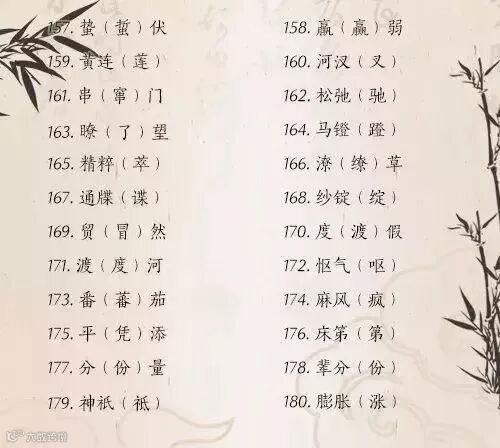 157. 蛰（蜇）伏 158. 羸（赢）弱
159. 黄连（莲） 160. 河汊（叉）
161. 串（窜）门 162. 松弛（驰）
163. 瞭（了）望 164. 马镫（蹬）
165. 精粹（萃） 166. 潦（缭）草
167. 通牒（谍） 168. 纱锭（绽）
169. 贸（冒）然 170. 度（渡）假
171. 渡（度）河 172. 怄气（呕）
173. 番（蕃）茄 174. 麻风（疯）
175. 平（凭）添 176. 床笫（第）
177. 分（份）量 178. 辈分（份）
179. 神祇（祗） 180. 膨胀（涨）
大数跨境